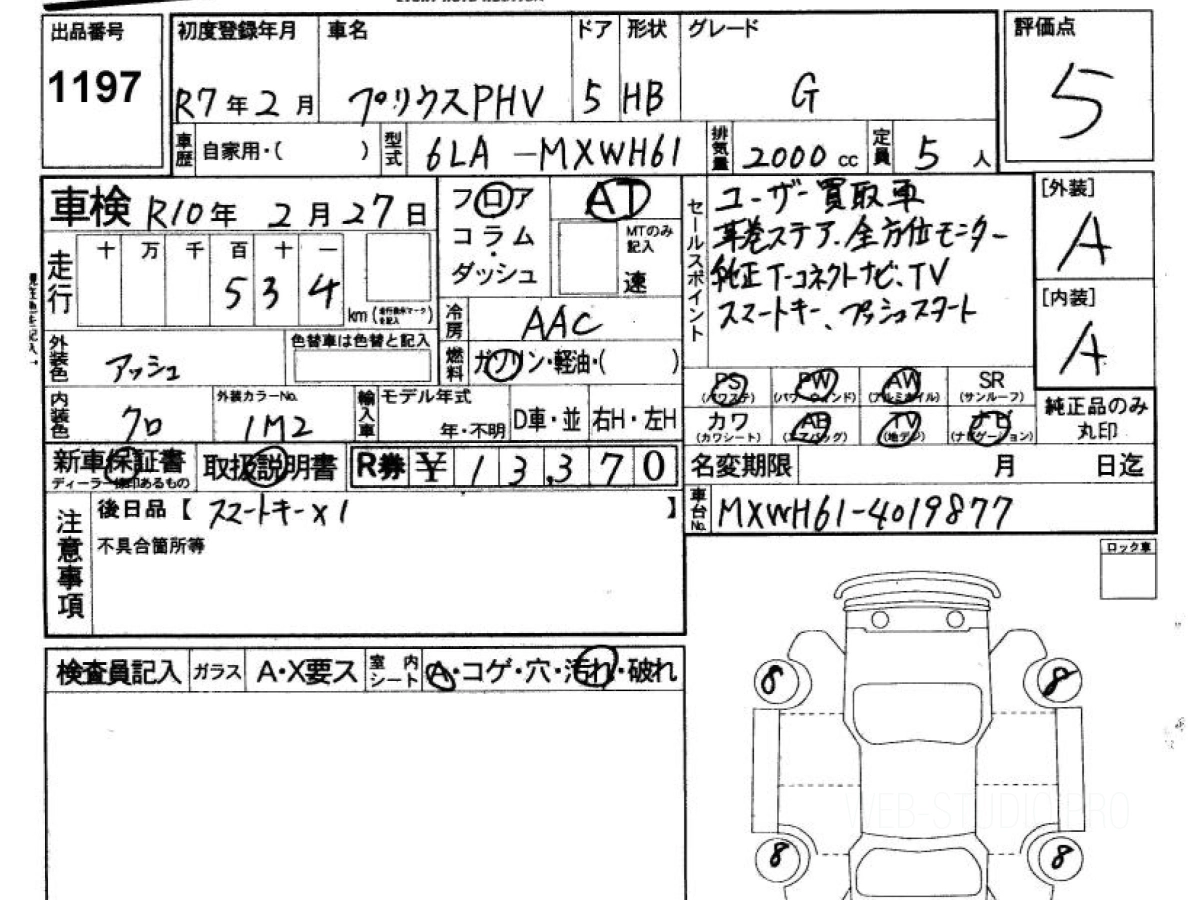 出品番号
1197
初度登録年月
R7年2月
車名
プリウスPHV
ドア
5
形状
HB
グレード
G
評価点
5
車歴
自家用・( )
型式
6LA-MXWH61
排気量
2000cc
定員
5人
車検 R10年 2月27日
フロア
コラム
ダッシュ
AT
MTのみ記入
速
セールスポイント
ユーザー買取車
革巻ステア、全方位モニター
純正T-コネクトナビ、TV
スマートキー、プッシュスタート
[外装]
A
[内装]
A
走行
十 万 千 百 十 一
5 3 4
km(走行換算マークを記入)
冷房
AAC
燃料
ガソリン・軽油・( )
外装色
アッシュ
色替車は色替と記入
内装色
クロ
外装カラーNo.
1M2
輸入車
モデル年式
年・不明
D車・並
右H・左H
PS
(パワステ)
PW
(パワーウィンド)
AW
(アルミホイル)
SR
(サンルーフ)
カワ
(カワシート)
AB
(エアバッグ)
TV
(地デジ)
ナビ
(ナビゲーション)
純正品のみ
丸印
新車保証書
ディーラー捺印あるもの
取扱説明書
R券
¥13,370
名変期限
月 日迄
車台No.
MXWH61-4019877
注意事項
後日品【 スマートキー×1 】
不具合箇所等
ロック車
検査員記入
ガラス
A・X要ス
室内シート
A・コゲ・穴・汚れ・破れ
8
8
8
8
WEB-STUDIO PRO